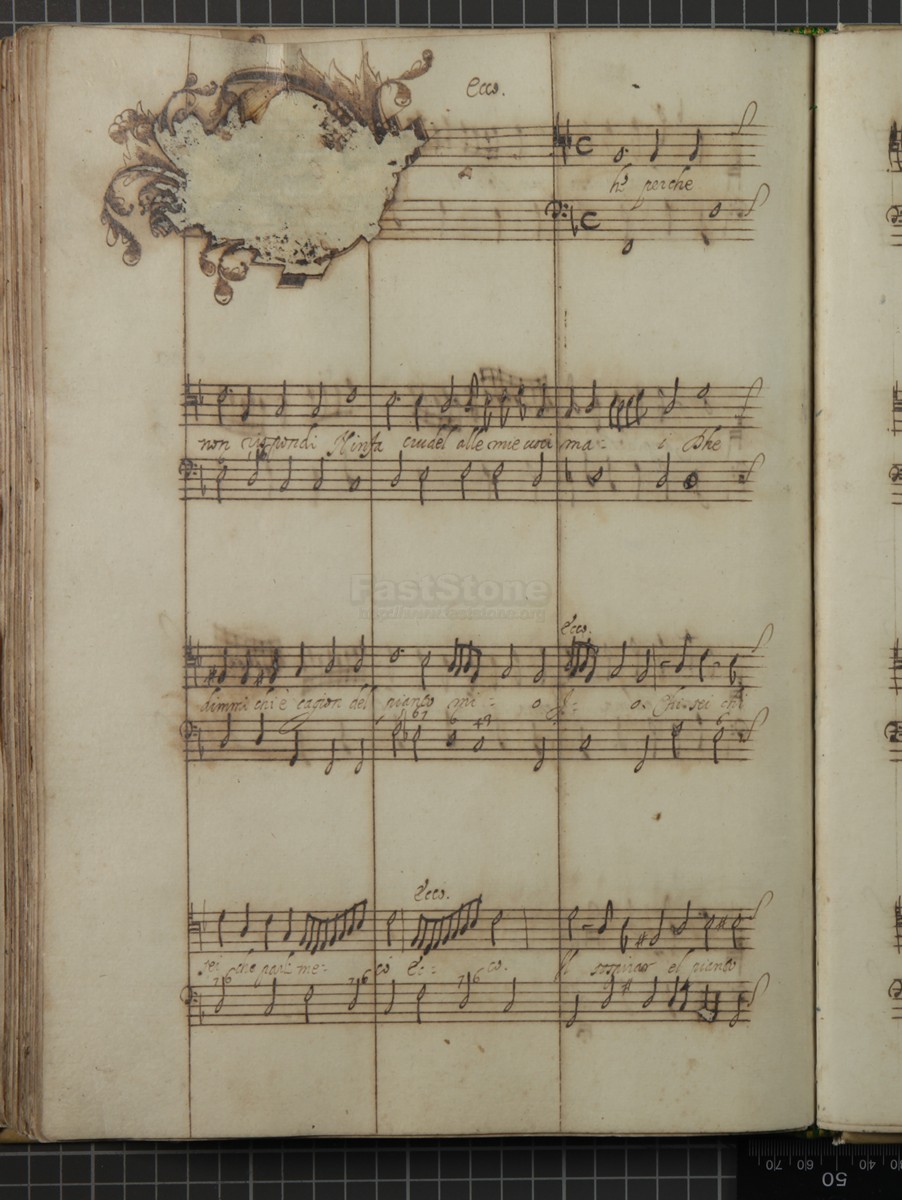 Ecco.
hò perche
non rispondi Ninfa crudel alle mie uoci ma - i Dhe
FastStone
http://www.faststone.org
Ecco.
dimmi chi è cagion del pianto mi - o I - o. Chi sei chi
6 7 6 4 3 6
Ecco.
sei che parli me - co Ec - co. Il sospirar el pianto
7 6 7 6 7 6 #
70 60 50 40